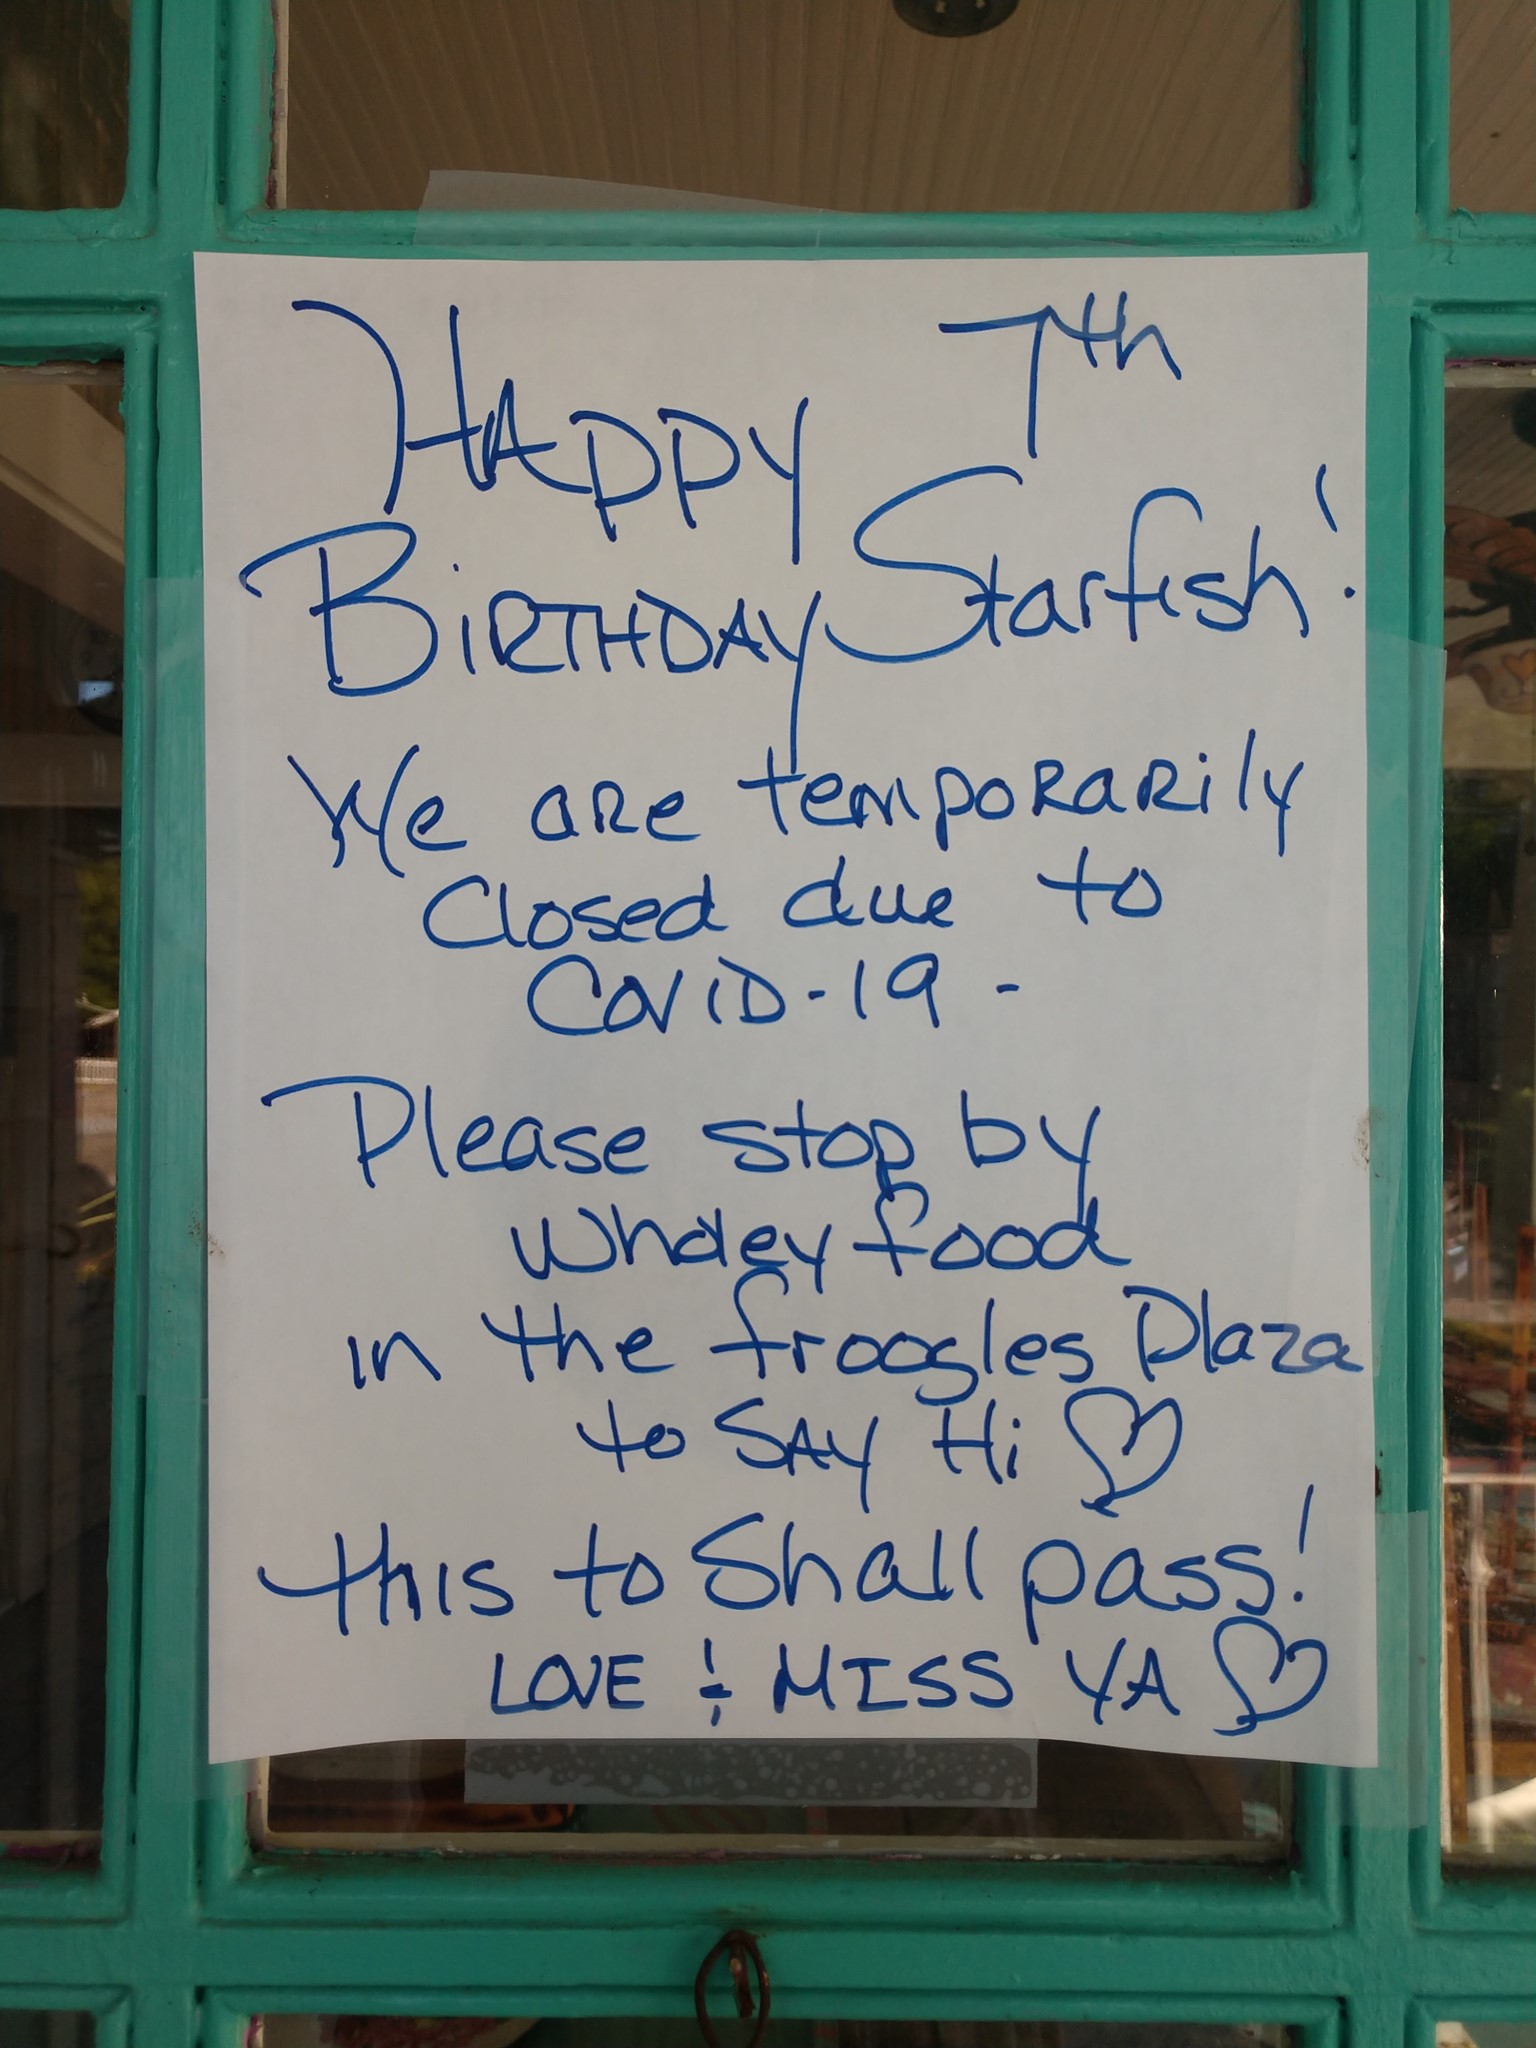 HAPPY 7th
BIRTHDAY Starfish!
We are temporarily
Closed due to
COVID-19 -
Please stop by
Wholey food
in the froogles Plaza
to SAY Hi ♡
this to Shall pass!
LOVE & MISS YA ♡